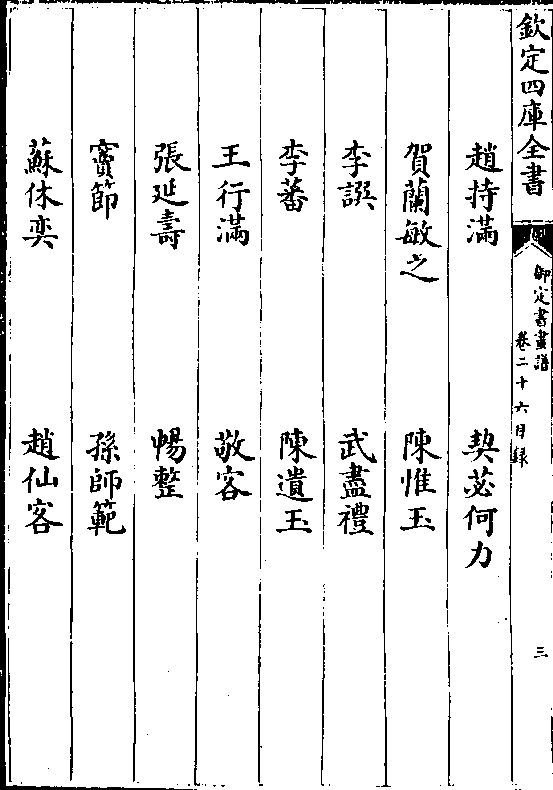 欽定四庫全書
御定書畫譜
卷二十六目錄
三
趙持滿 契苾何力
賀蘭敏之 陳惟玉
李譔 武盡禮
李蕃 陳遺玉
王行滿 敬客
張延壽 暢整
竇節 孫師範
蘇休奕 趙仙客